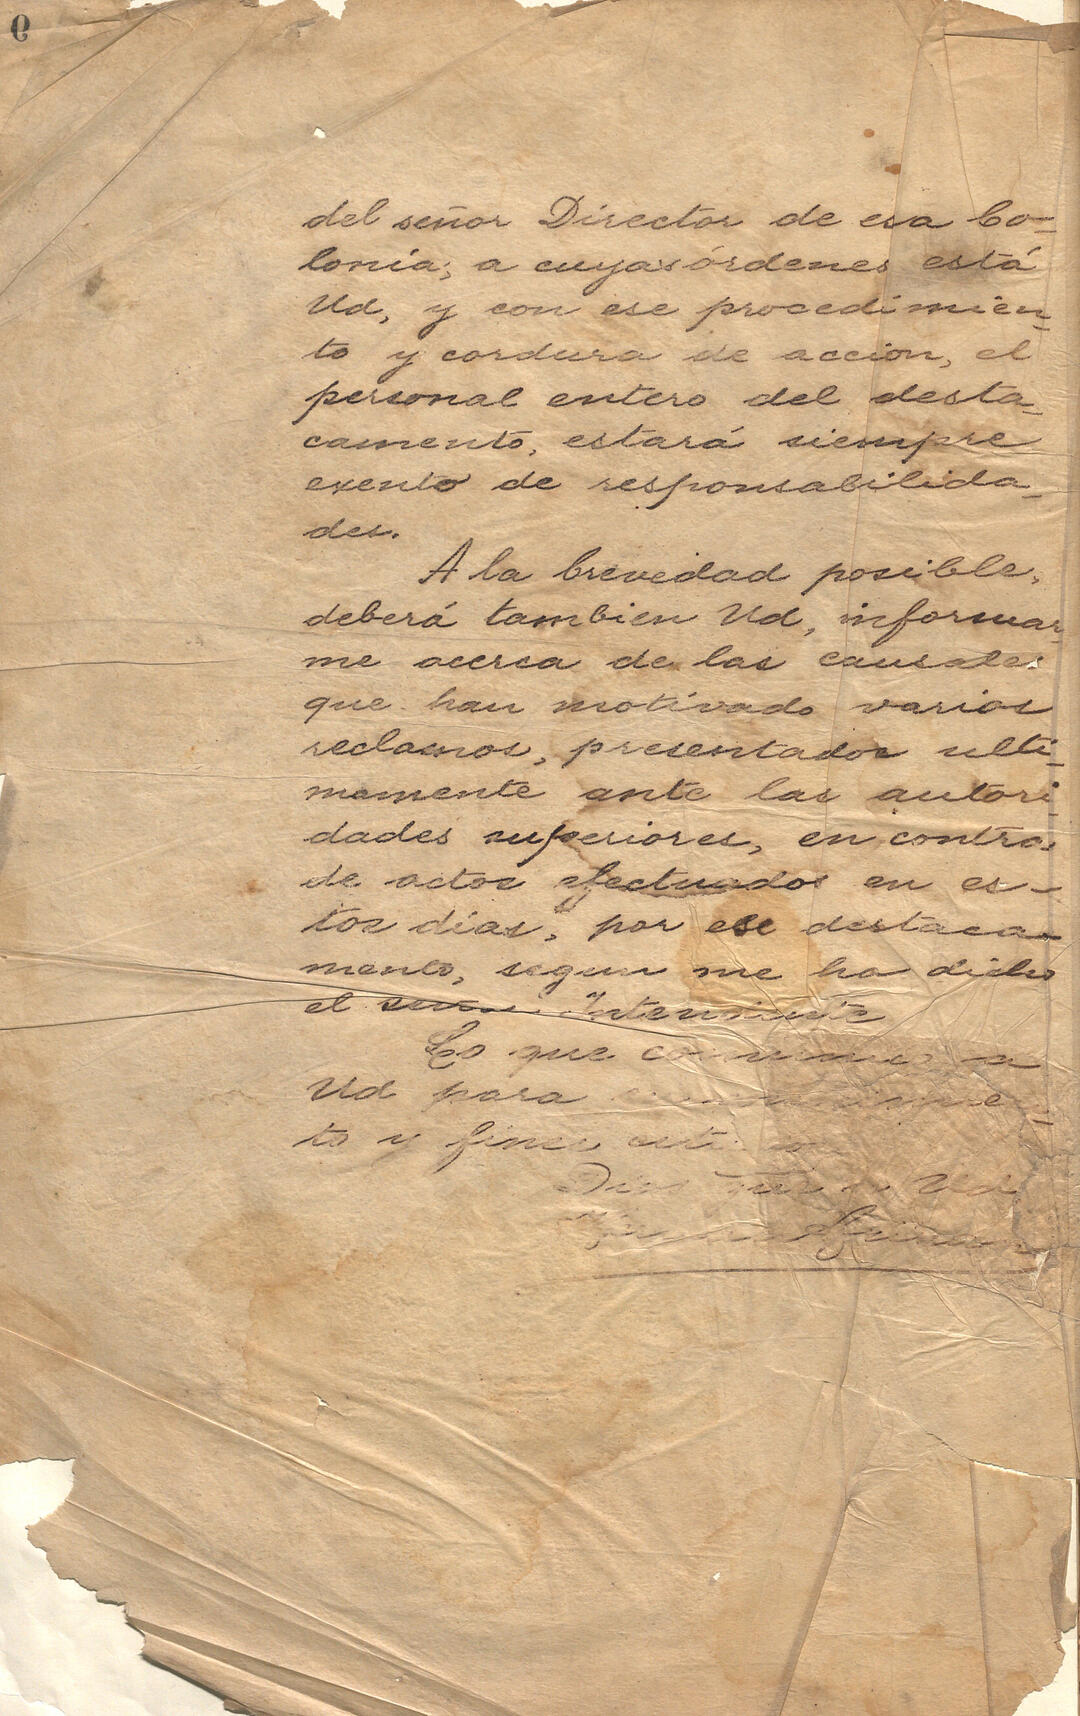 del señor Director de esa Co-
lonia; a cuyas órdenes está
Ud, y con ese procedimien-
to y cordura de accion, el
personal entero del desta-
camento, estará siempre
exento de responsabilida-
des.
A la brevedad posible,
deberá tambien Ud, informar
me acerca de las causales
que han motivado varios
reclamos, presentados ulti-
mamente ante las autori-
dades superiores, en contra
de actos efectuados en es-
tos días, por ese destaca-
mento, segun me ha dicho
el señor Intendente
Lo que comunico a
Ud para
to y fines
Dios Ud